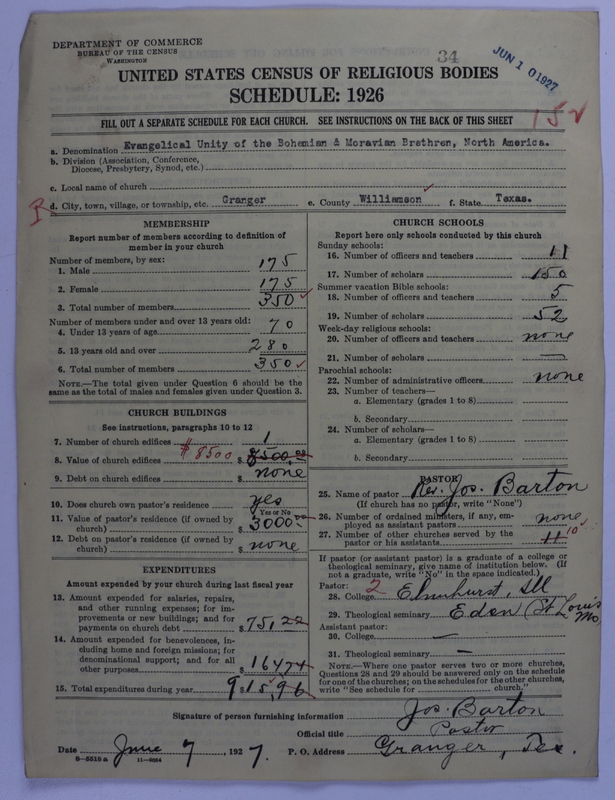 DEPARTMENT OF COMMERCE
BUREAU OF THE CENSUS
WASHINGTON
34
JUN 10 1927
UNITED STATES CENSUS OF RELIGIOUS BODIES
SCHEDULE: 1926
FILL OUT A SEPARATE SCHEDULE FOR EACH CHURCH. SEE INSTRUCTIONS ON THE BACK OF THIS SHEET
152
a. Denomination Evangelical Unity of the Bohemian & Moravian Brethren, North America.
b. Division (Association, Conference,
Diocese, Presbytery, Synod, etc.)
c. Local name of church
d. City, town, village, or township, etc. Granger e. County Williamson f. State Texas.
MEMBERSHIP
Report number of members according to definition of
member in your church
Number of members, by sex:
1. Male 175
2. Female 175
3. Total number of members 350
Number of members under and over 13 years old:
4. Under 13 years of age 70
5. 13 years old and over 280
6. Total number of members 350
NOTE.—The total given under Question 6 should be
same as the total of males and females given under Question 3.
CHURCH BUILDINGS
See instructions, paragraphs 10 to 12
7. Number of church edifices 1
8. Value of church edifices $8500 $ 8500.00
9. Debt on church edifices $ none
10. Does church own pastor's residence yes
Yes or No
11. Value of pastor's residence (if owned by
church) $ 3000.00
12. Debt on pastor's residence (if owned by
church) $ none
EXPENDITURES
Amount expended by your church during last fiscal year
13. Amount expended for salaries, repairs,
and other running expenses; for im-
provements or new buildings; and for
payments on church debt $ 751.22
14. Amount expended for benevolences, in-
cluding home and foreign missions; for
denominational support; and for all
other purposes $ 164.74
15. Total expenditures during year $ 915.96
CHURCH SCHOOLS
Report here only schools conducted by this church
Sunday schools:
16. Number of officers and teachers 11
17. Number of scholars 150
Summer vacation Bible schools:
18. Number of officers and teachers 5
19. Number of scholars 52
Week-day religious schools:
20. Number of officers and teachers none
21. Number of scholars —
Parochial schools:
22. Number of administrative officers none
23. Number of teachers—
a. Elementary (grades 1 to 8)
b. Secondary
24. Number of scholars—
a. Elementary (grades 1 to 8)
b. Secondary
PASTOR
25. Name of pastor Rev. Jos. Barton
(If church has no pastor, write "None")
26. Number of ordained ministers, if any, em-
ployed as assistant pastors none
27. Number of other churches served by the
pastor or his assistants 11 10
If pastor (or assistant pastor) is a graduate of a college or
theological seminary, give name of institution below. (If
not a graduate, write "No" in the space indicated.)
Pastor:
28. College 2 Elmhurst, Ill
29. Theological seminary Eden (St Louis Mo
Assistant pastor:
30. College —
31. Theological seminary —
NOTE.—Where one pastor serves two or more churches,
Questions 28 and 29 should be answered only on the schedule
for one of the churches; on the schedules for the other churches,
write "See schedule for church."
Signature of person furnishing information Jos. Barton
Official title Pastor
Date June 7, 1927. P. O. Address Granger, Tex.
8—5518 a 11—9284